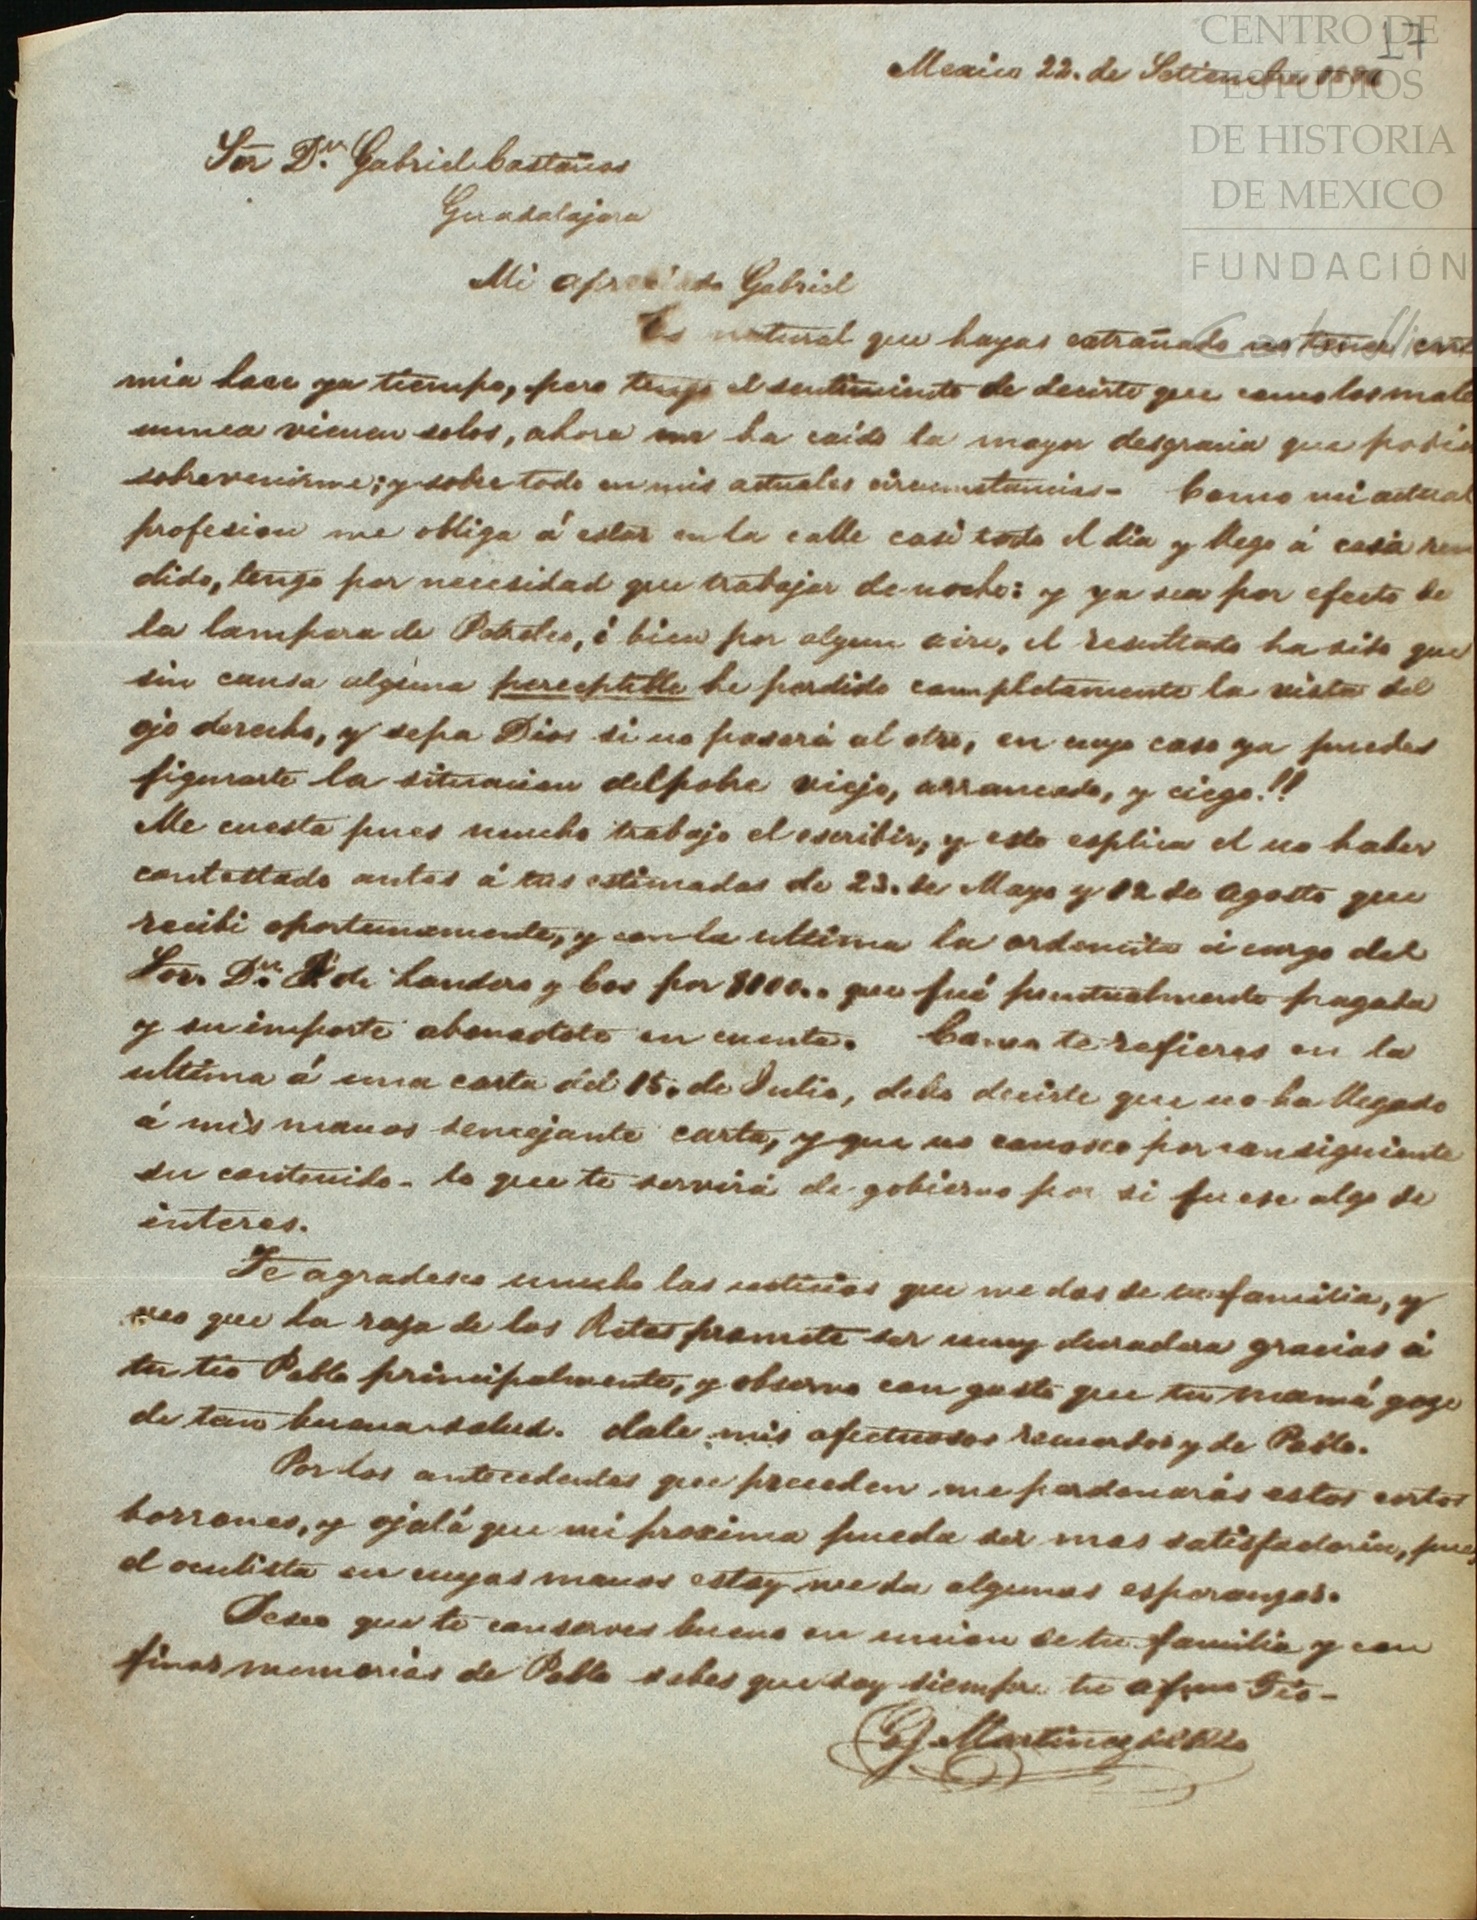 17
CENTRO DE
ESTUDIOS
DE HISTORIA
DE MEXICO
FUNDACIÓN
Mexico 22. de Setiembre
Sor Dn. Gabriel Castaños
Guadalajara
Mi apreciado Gabriel
Es natural que hayas extrañado no tener carta
mia hace ya tiempo, pero tengo el sentimiento de decirte que como los male
nunca vienen solos, ahora me ha caido la mayor desgracia que podia
sobrevenirme; y sobre todo en mis actuales circunstancias- Como mi actual
profesion me obliga á estar en la calle casi todo el dia y llego á casa ren
dido, tengo por necesidad que trabajar de noche: y ya sea por efecto de
la lampara de Petroleo, ó bien por algun aire, el resultado ha sido que
sin causa alguna perceptible he perdido completamente la vista del
ojo derecho, y sepa Dios si no pasará al otro, en cuyo caso ya puedes
figurarte la situacion del pobre viejo, arrancado, y ciego!!
Me cuesta pues mucho trabajo el escribir, y esto esplica el no haber
contestado antes á tus estimadas de 23. de Mayo y 12 de Agosto que
recibi oportunamente, y con la ultima la ordencita á cargo del
Sor. Dn. de Landero y Cos por que fué puntualmente pagada
y su importe abonadote en cuenta. Como te refieres en la
ultima á una carta del 15. de Julio, debo decirte que no ha llegado
á mis manos semejante carta, y que no conosco por consiguiente
su contenido- lo que te servirá de gobierno por si fuese algo de
interes.
Te agradesco mucho las noticias que me das de tu familia, y
veo que la raza de los Retes promete ser muy duradera gracias á
tu tio Pablo principalmente, y observo con gusto que tu mamá goze
de tan buena salud. dale mis afectuosos recuerdos y de Pablo.
Por los antecedentes que preceden me perdonarás estos cortos
borrones, y ojalá que mi proxima pueda ser mas satisfactoria, pues
el oculista en cuyas manos estoy me da algunas esperanzas.
Deseo que te conserves bueno en union de tu familia y con
finas memorias de Pablo sabes que soy siempre tu afmo Tio-
G. Martinez del Rio